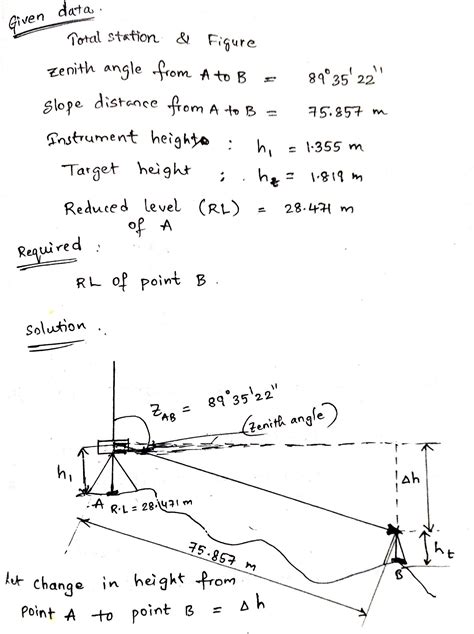 Given data.
Total station & Figure
Zenith angle from A to B = 89°35'22"
Slope distance from A to B = 75.857 m
Instrument height : h₁ = 1.355 m
Target height : hₜ = 1.819 m
Reduced level (RL) = 28.471 m
of A
Required :
RL of point B.
Solution.
Z_AB = 89°35'22"
(Zenith angle)
h₁
Δh
A R.L = 28.1471 m
hₜ
75.857 m
B
Let change in height from
point A to point B = Δh